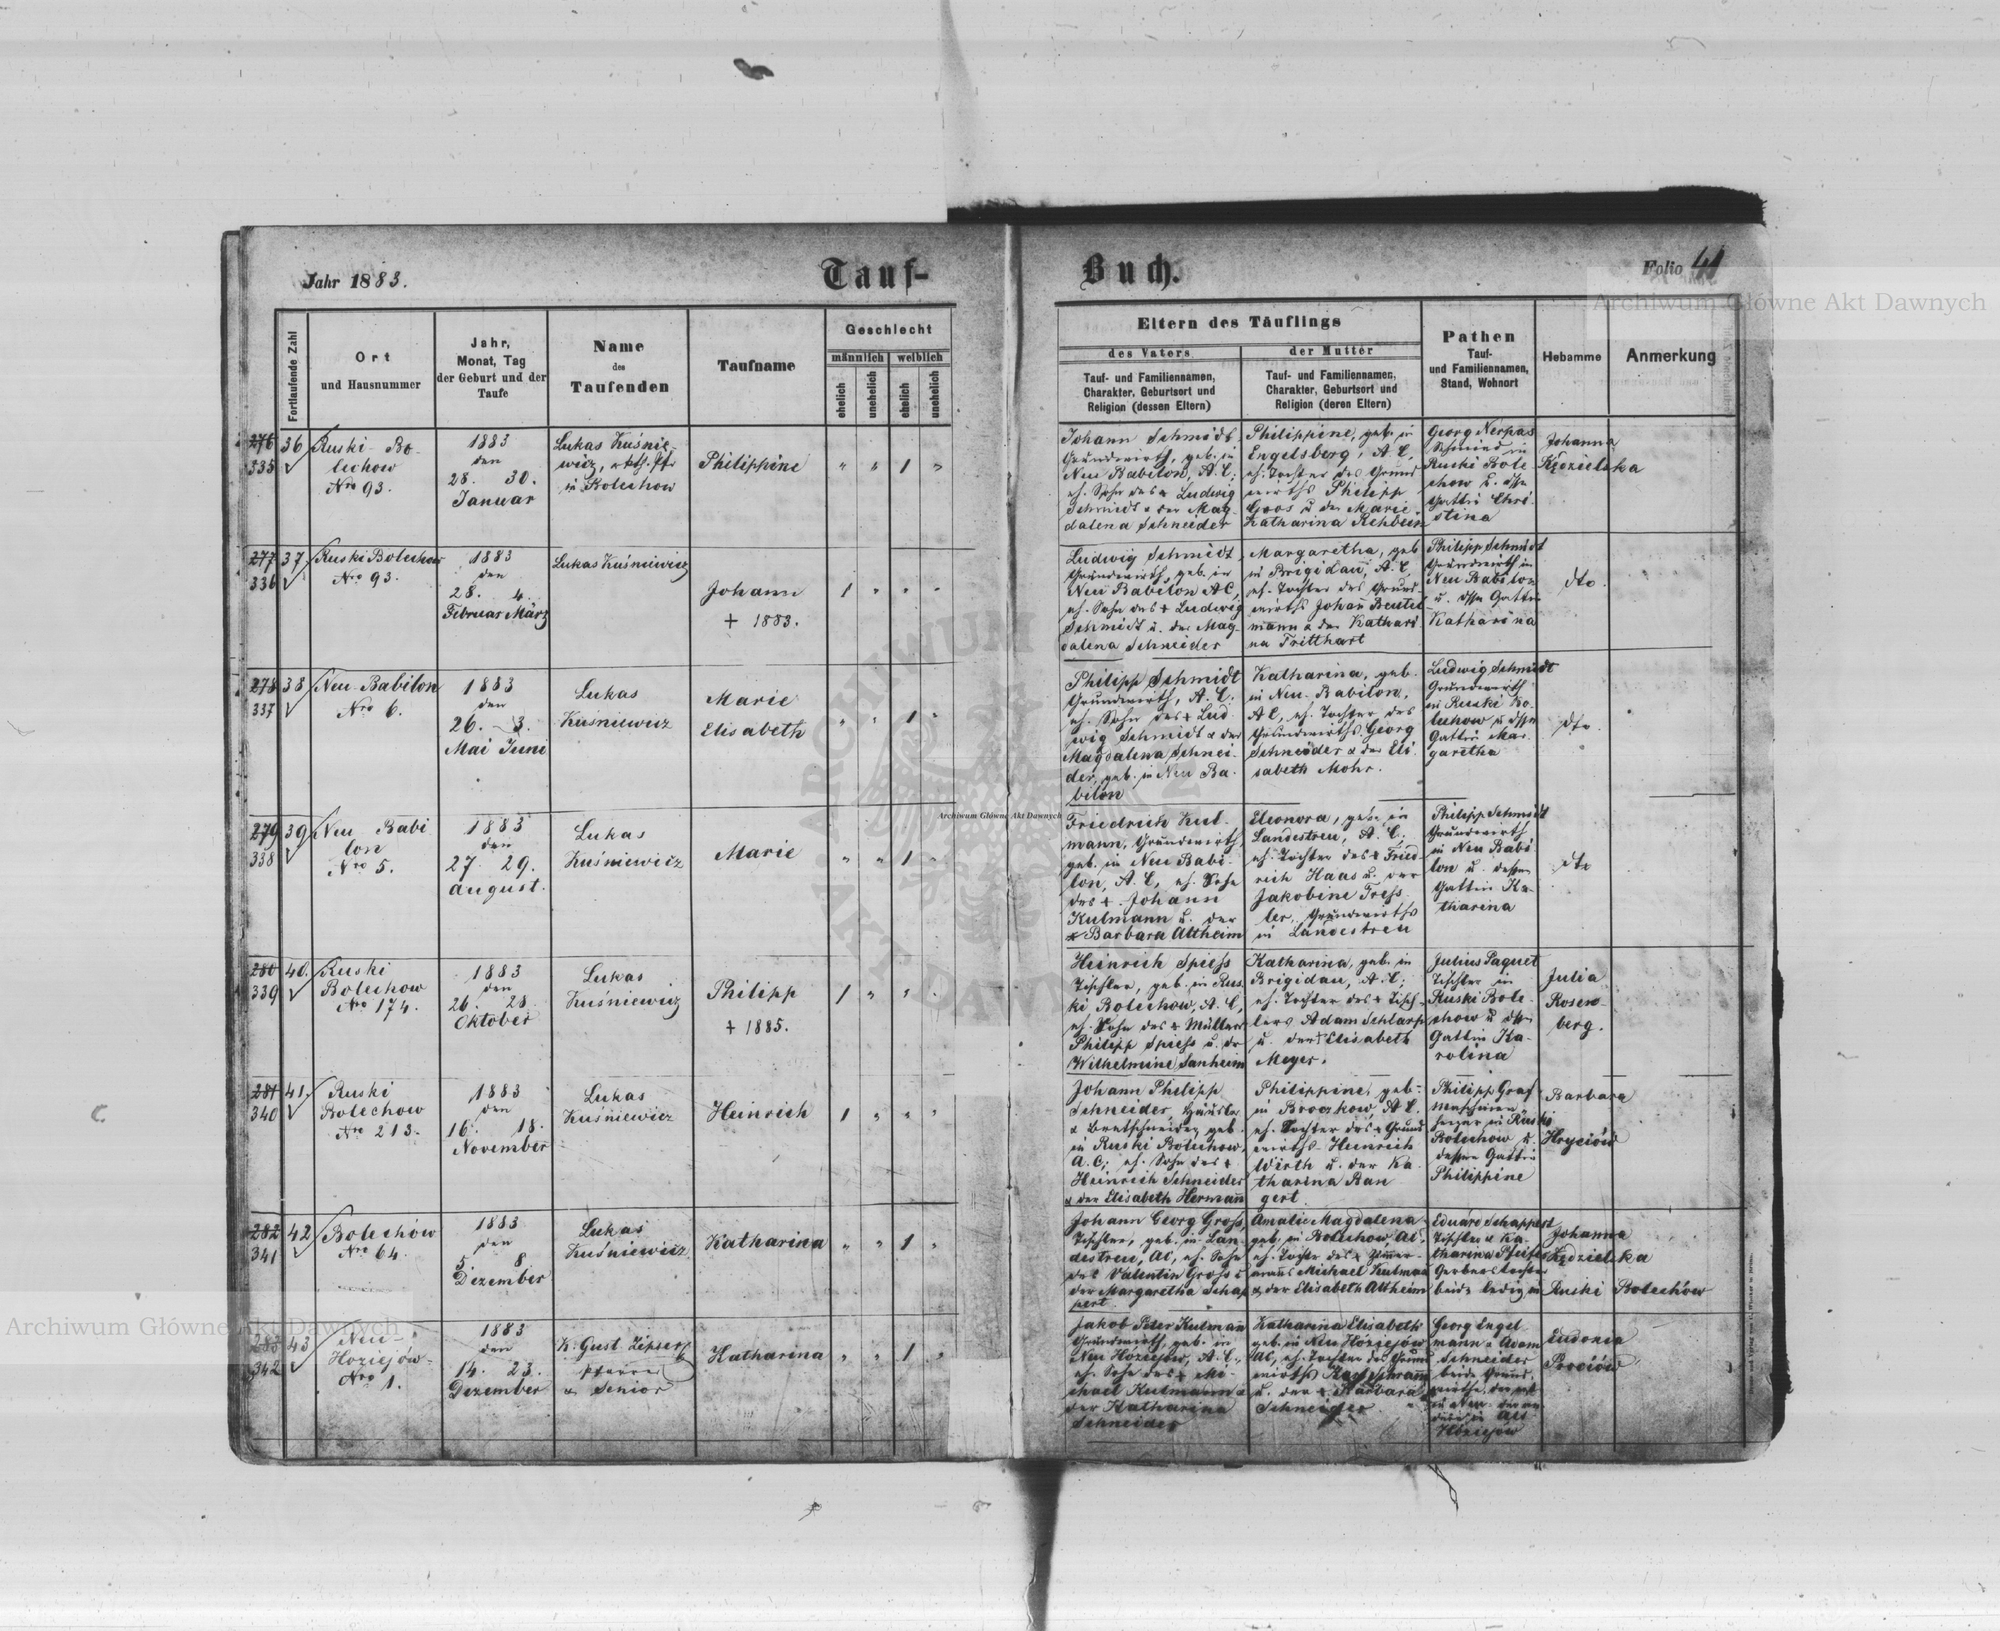 Jahr 1883.
Tauf-
Buch.
Folio 41
Archiwum Główne Akt Dawnych
Fortlaufende Zahl
Ort
und Hausnummer
Jahr,
Monat, Tag
der Geburt und der
Taufe
Name
des
Taufenden
Taufname
Geschlecht
männlich
weiblich
ehelich
unehelich
ehelich
unehelich
Eltern des Täuflings
des Vaters
der Mutter
Tauf- und Familiennamen,
Charakter, Geburtsort und
Religion (dessen Eltern)
Tauf- und Familiennamen,
Charakter, Geburtsort und
Religion (deren Eltern)
Pathen
Tauf-
und Familiennamen,
Stand, Wohnort
Hebamme
Anmerkung
276
335
36
Ruski Bo-
lechow
Nro 93.
1883
den
28. 30.
Januar
Lukas Kuśnie-
wicz,
in Bolechow
Philippine
" " 1 "
Johann Schmidt,
Grundwirth, geb. in
Neu Babilon, A. C.,
eh. Sohn des + Ludwig
Schmidt u der Mag-
dalena Schneider
Philippine, geb. in
Engelsberg, A. C.,
eh. Tochter des Grund
wirths Philipp
Goos u der Marie
Katharina Rehbein
Georg Nerpas
Schmied in
Ruski Bole
chow u. dssn
Gattin Chri-
stina
Johanna
Kędzielska
277
336
37.
Ruski Bolechow
Nro 93.
1883
den
28. 4.
Februar März
Lukas Kuśniewicz
Johann
+ 1883.
1 " " "
Ludwig Schmidt
Grundwirth, geb. in
Neu Babilon AC,
eh. Sohn des + Ludwig
Schmidt u. der Mag-
dalena Schneider
Margaretha, geb
in Brigidau, A. C,
eh. Tochter des Grund-
wirths Johan Beutel-
mann u der Kathari
na Tritthart
Philipp Schmidt
Grundwirth in
Neu Babilon
u. dssn Gattin
Katharina
dto.
278
337
38
Neu-Babilon
Nro 6.
1883
den
26. 3.
Mai Juni
Lukas
Kuśniewicz
Marie
Elisabeth
" " 1 "
Philipp Schmidt
Grundwirth, A. C.
eh. Sohn des + Lud
wig Schmidt u der
Magdalena Schnei-
der, geb. in Neu Ba-
bilon
Katharina, geb.
in Neu-Babilon,
AC, eh. Tochter des
Grundwirths Georg
Schneider u der Eli-
sabeth Mohr.
Ludwig Schmidt
Grundwirth
in Ruski Bo-
lechow u dssn
Gattin Mar-
garetha
dto.
279
338
39
Neu Babi
lon
Nro 5.
1883
den
27. 29.
August.
Lukas
Kuśniewicz
Marie
" " 1 "
Friedrich Kul-
mann, Grundwirth,
geb. in Neu Babi-
lon, A. C, eh. Sohn
des + Johann
Kulmann u. der
+ Barbara Altheim
Eleonora, geb. in
Landestreu, A. C.
eh. Tochter des + Fried-
rich Haas u. der
Jakobine Tress
ler, Grundwirths
in Landestreu
Philipp Schmidt
Grundwirth
in Neu Babi
lon u. dessen
Gattin Ka-
tharina
dto
280
339
40.
Ruski
Bolechow
Nro 174.
1883
den
26. 28.
Oktober
Lukas
Kuśniewicz
Philipp
+ 1885.
1 " " "
Heinrich Spiess
Tischler, geb. in Rus-
ki Bolechow, A. C,
eh. Sohn des + Müllers
Philipp Spiess u. dr
Wilhelmine Sanheim
Katharina, geb. in
Brigidau, A. C;
eh. Tochter des + Tisch-
lers Adam Schlarp
u. der + Elisabeth
Meyer.
Julius Paquet
Tischler in
Ruski Bole-
chow u dssn
Gattin Ka-
rolina
Julia
Rosen-
berg.
281
340
41.
Ruski
Bolechow
Nro 213.
1883
den
16. 18.
November
Lukas
Kuśniewicz
Heinrich
1 " " "
Johann Philipp
Schneider, Häusler
u Brettschneider, geb.
in Ruski Bolechow,
A. C; eh. Sohn des +
Heinrich Schneider
u der Elisabeth Hermann
Philippine, geb-
in Broczkow, A. C.
eh. Tochter des + Grund
wirths Heinrich
Wirth u. der Ka-
tharina Ban
gert
Philipp Graf
Maschinen-
heizer in Ruski
Bolechow u.
dessen Gattin
Philippine
Barbara
Hryciów
282
341
42
Bolechów
Nro 64.
1883
den
5 8
Dezember
Lukas
Kuśniewicz
Katharina
" " 1 "
Johann Georg Gross,
Tischler, geb. in Lan-
destreu, AC, eh. Sohn
des Valentin Gross u
der Margaretha Schap
pert
Amalie Magdalena
geb. in Bolechow, AC,
eh. Tochter des + Zimmer-
manns Michael Kulman
u der Elisabeth Altheim
Eduard Schappert
Tischler u Ka-
tharina Pfeifer
Gerberstochter
beide ledig in Ruski Bolechów
Johanna
Kędzielska
283
342
43
Neu-
Hoziejów
Nro 1.
1883
den
14. 23.
Dezember
K. Gust. Zipser
Pfarrer
u Senior
Katharina
" " 1 "
Jakob Peter Kulmann
Grundwirth, geb. in
Neu Hoziejów, A. C.,
eh. Sohn des + Mi-
chael Kulmann u
der Katharina
Schneider
Katharina Elisabeth
geb. in Neu Hoziejów
AC, eh. Tochter des Grund
wirths Karl Schramm
u. der + Barbara
Schneider
Georg Engel
mann u Adam
Schneider
beide Grund-
wirthe, der erste
in Neu- der an
dere in Alt
Hoziejow
Eudonia
Procióv
Archiwum Główne Akt Dawnych
Archiwum Główne Akt Dawnych